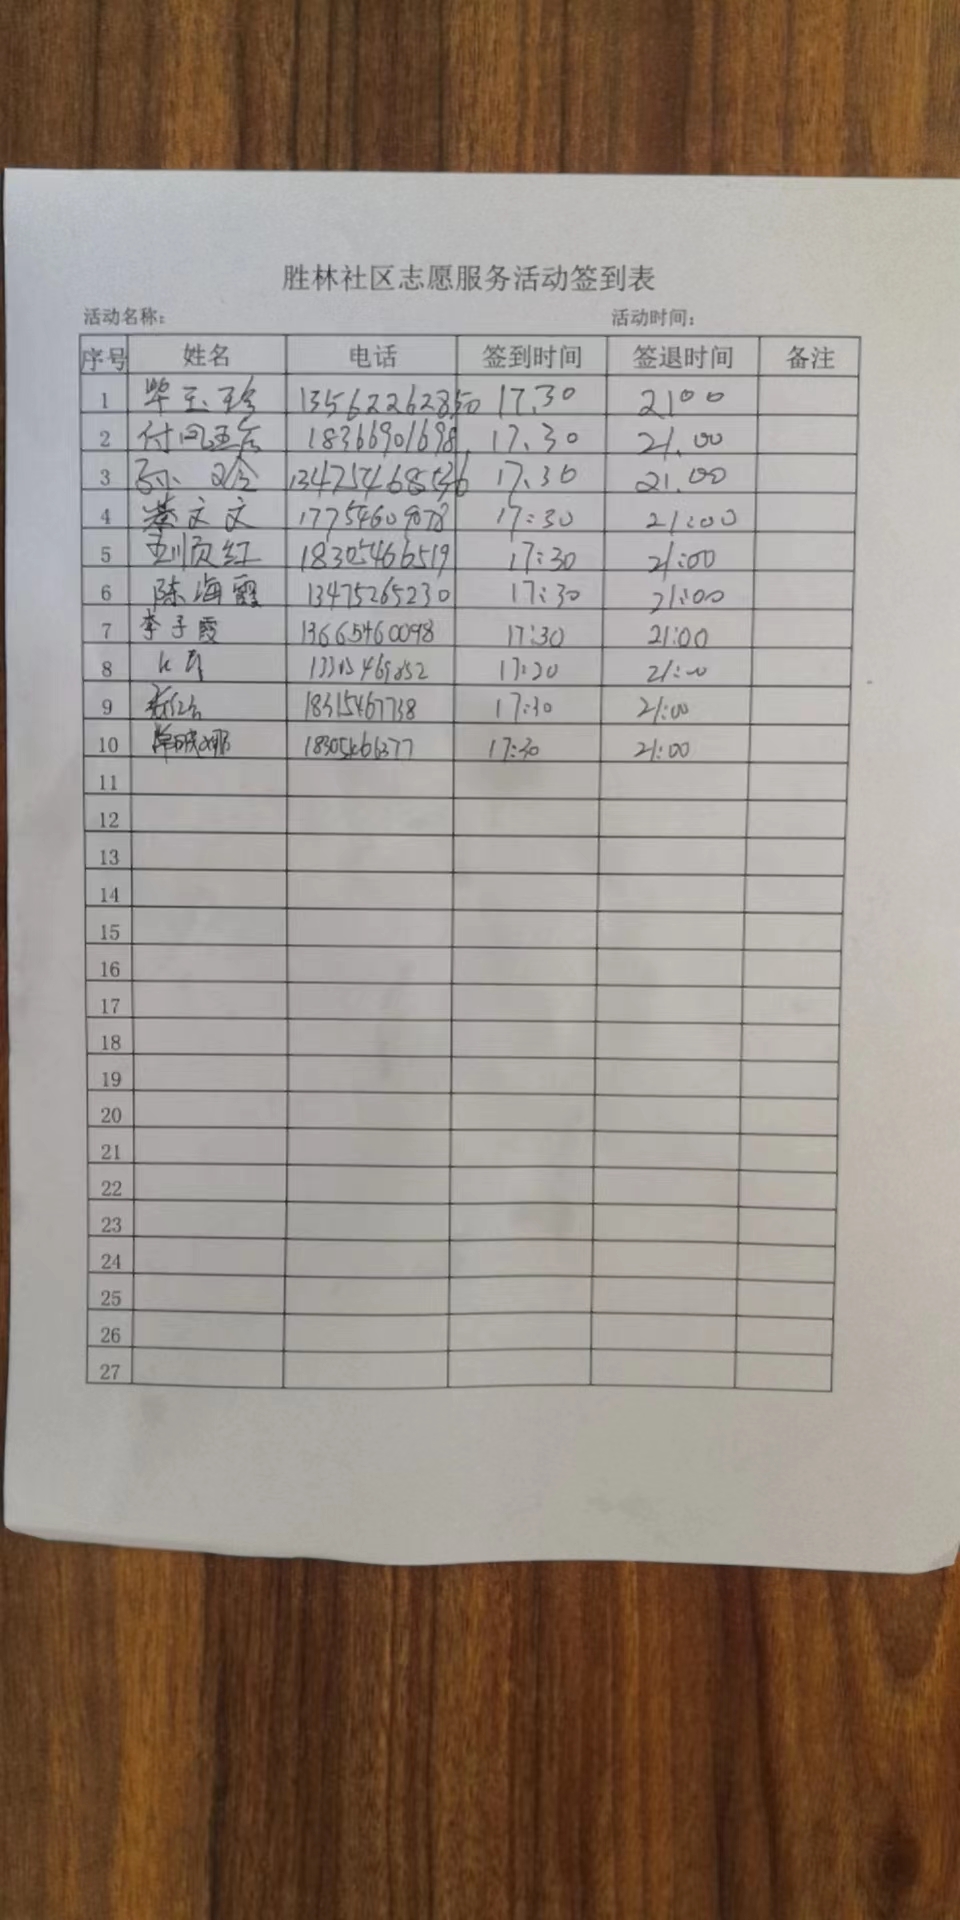 胜林社区志愿服务活动签到表
活动名称: 活动时间:
序号 姓名 电话 签到时间 签退时间 备注
1 毕玉珍 13562262850 17.30 2100
2 18366901698 17.30 21.00
3 孙 13475468536 17.30 21.00
4 蔡文文 17754609078 17:30 21:00
5 18305466519 17:30 21:00
6 陈海霞 13475265230 17:30 21:00
7 李子霞 13665460098 17:30 21:00
8 21:00
9 18315467738 17:30 21:00
10 18305466377 17:30 21:00
11
12
13
14
15
16
17
18
19
20
21
22
23
24
25
26
27